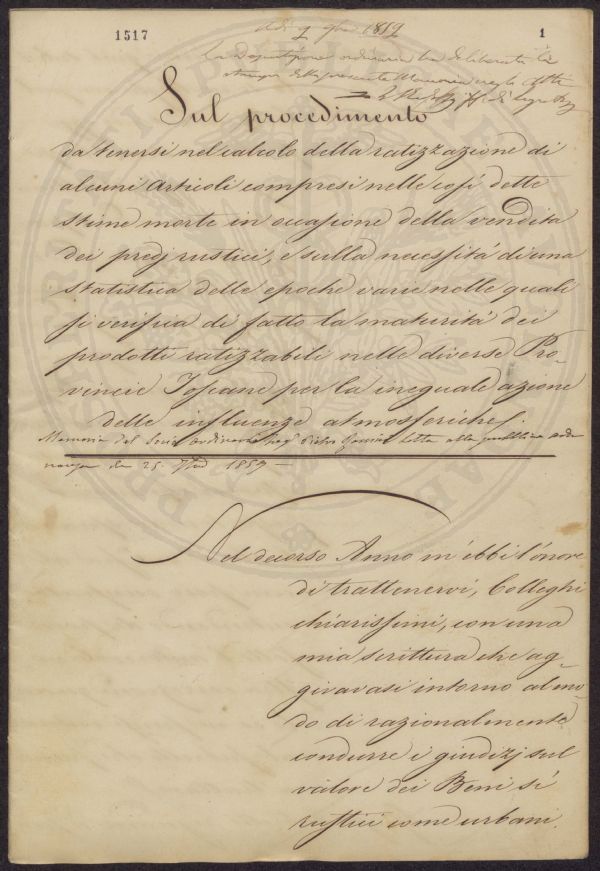 1517
1
Adì 1859
La Deputazione ordinaria ha deliberato la
stampa della presente Memoria negli Atti
Sul procedimento
da tenersi nel calcolo della ratizzazione di
alcuni articoli compresi nelle così dette
stime morte in occasione della vendita
dei predj rustici, e sulla necessità di una
statistica delle epoche varie nelle quali
si verifica di fatto la maturità dei
prodotti ratizzabili nelle diverse Pro-
vincie Toscane per la ineguale azione
delle influenze atmosferiche.
Memoria del Socio Ordinario Pietro letta alla pubblica adu
nanza de 25. 1859 —
Nel decorso Anno m'ebbi l'onore
di trattenervi, Colleghi
chiarissimi, con una
mia scrittura che ag-
giravasi intorno al mo-
do di razionalmente
condurre i giudizj sul
valore dei Beni sì
rustici come urbani.